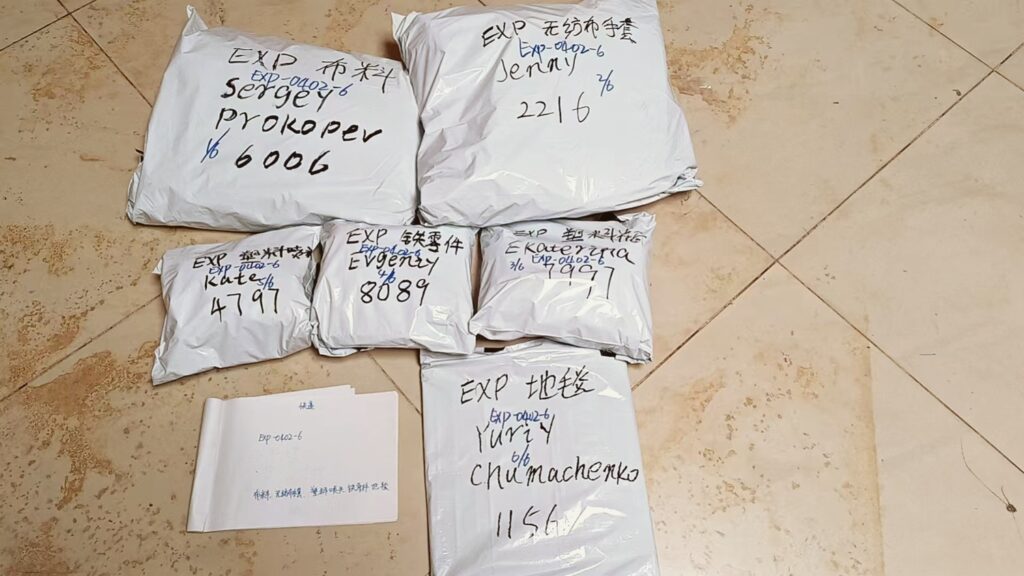 EXP 布料
EXP-0402-6
Sergey
Prokopev
1/6
6006
EXP 无纺布手套
EXP-0402-6
Jenny
2/6
2216
EXP 塑料喷
EXP-0402-6
Kate 5/6
4797
EXP 铁零件
EXP-0402-6
Evgeniy
4/6
8089
EXP 塑料
Ekaterina
3/6 EXP-0402-6
7997
EXP 地毯
EXP-0402-6
Yuriy
6/6
Chumachenko
1156
快递
EXP-0402-6
布料、无纺布手套、塑料喷头 铁零件 地毯